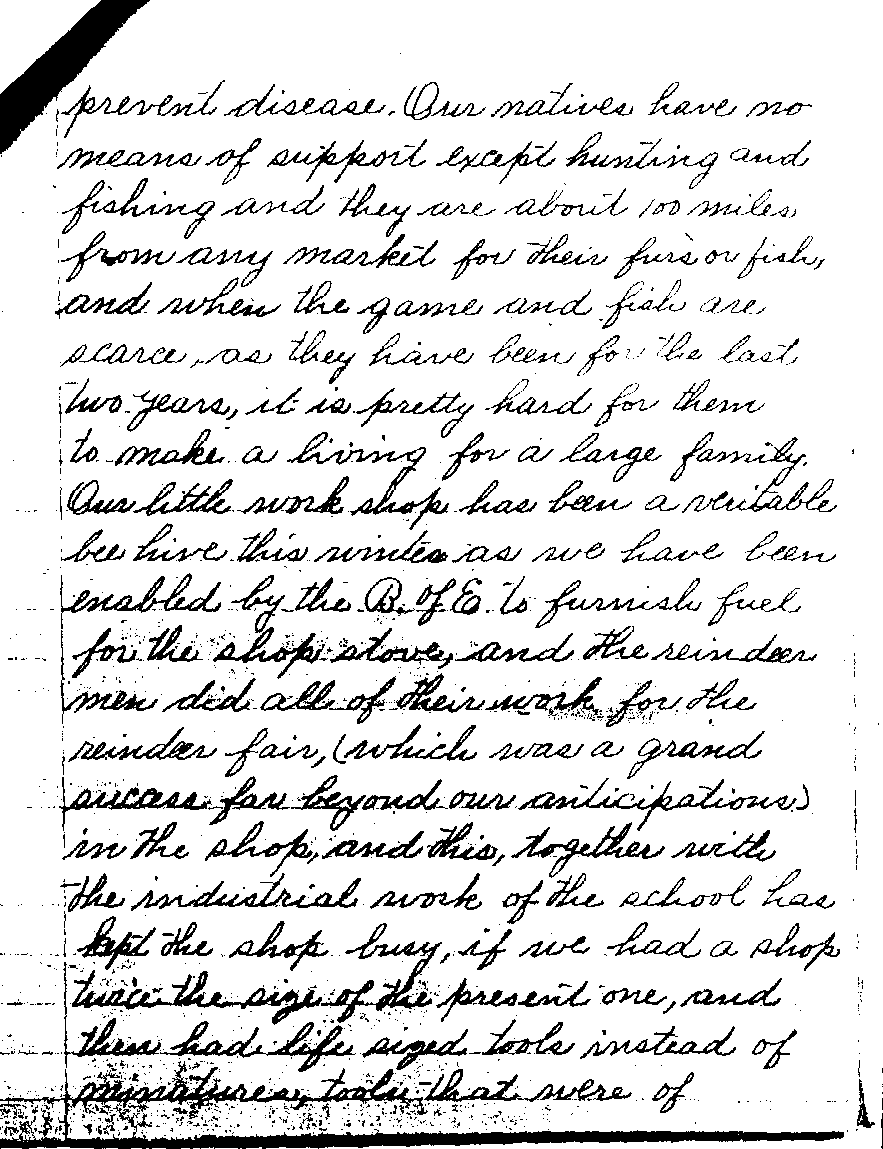 prevent disease. Our natives have no
means of support except hunting and
fishing and they are about 100 miles
from any market for their furs or fish,
and when the game and fish are
scarce, as they have been for the last
two years, it is pretty hard for them
to make a living for a large family.
Our little work shop has been a veritable
bee hive this winter as we have been
enabled by the B. of E. to furnish fuel
for the shop stove, and the reindeer
men did all of their work for the
reindeer fair, (which was a grand
success far beyond our anticipations)
in the shop, and this, together with
the industrial work of the school has
kept the shop busy, if we had a shop
twice the size of the present one, and
then had life sized tools instead of
minatures, tools that were of